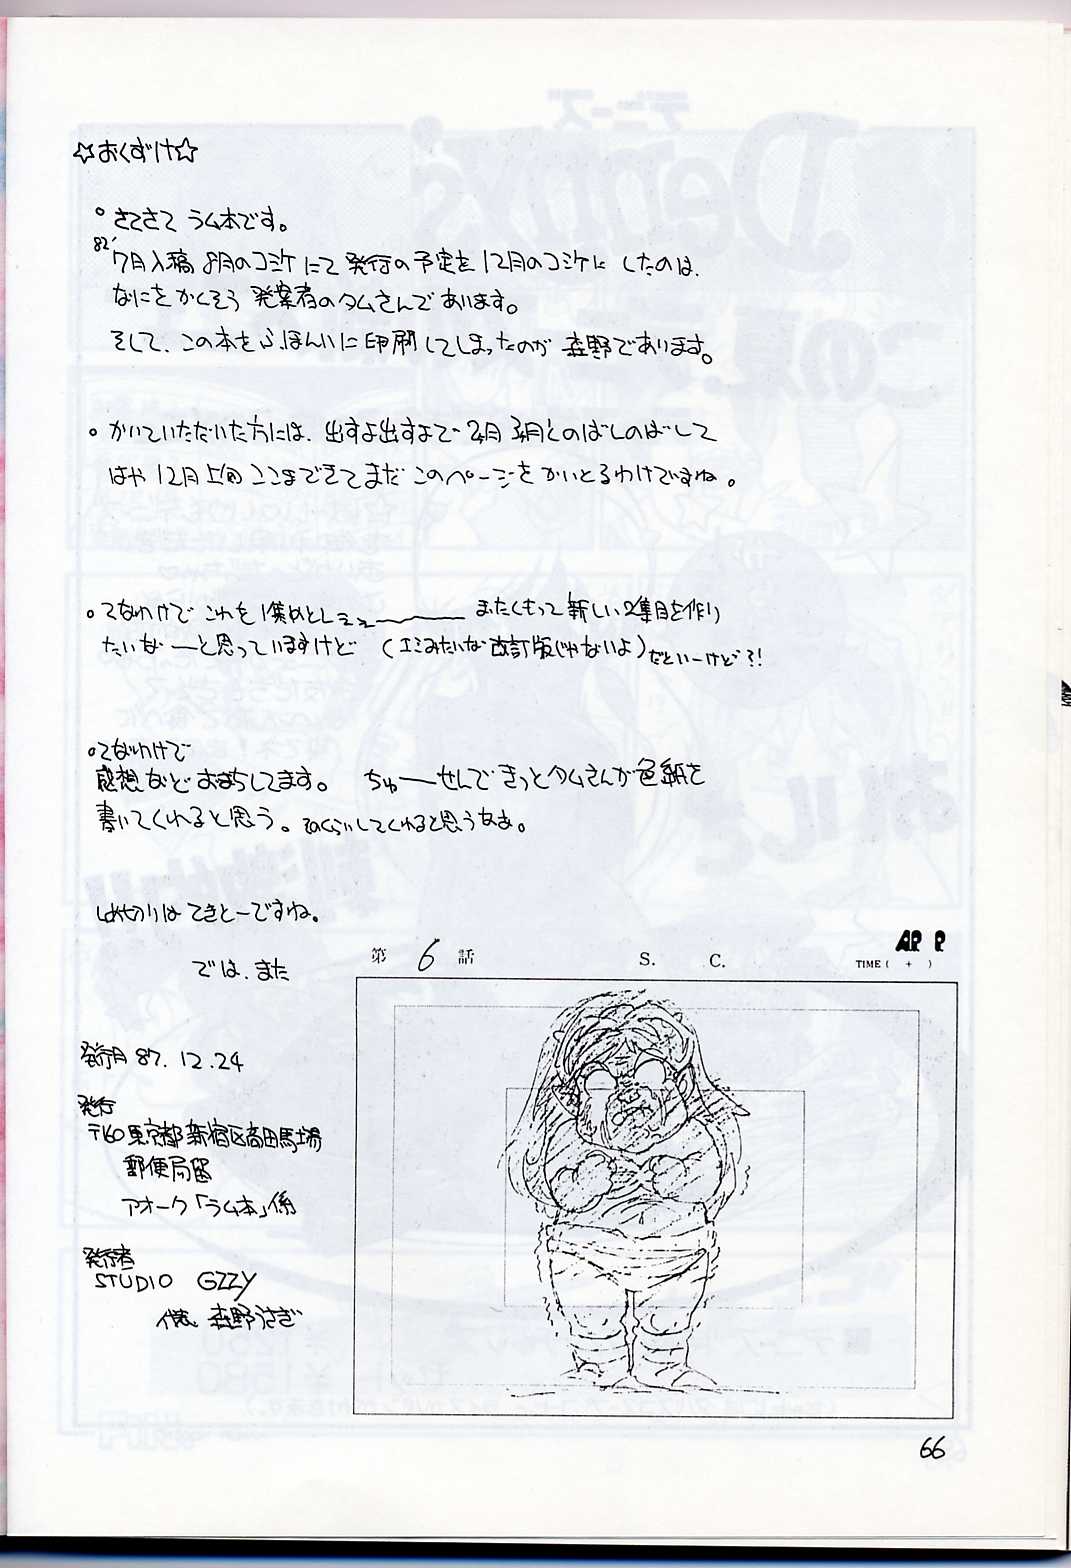 ☆おくずけ☆
○さてさて ラム本です。
82'
7月入稿 8月のコミケにて 発行の予定を 12月のコミケに したのは、
なにをかくそう 発案者のタムさんであります。
そして、この本をふほんいに印刷してしまったのが 森野であります。
○かいていただいた方には、出すよ出すよで 2月 3月とのばしのばして
はや 12月上旬 ここまできてまだ このページを かいとるわけですね。
○てなわけで これを 1集めとしぇぇ〜 またくもって 新しい2集目を作り
たいなーと思っていますけど (エミみたいな 改訂版じゃないよ) だといーけど?!
○てなわけで
感想など おまちしてます。 ちゅーせんで きっとタムさんが色紙を
書いてくれると思う。そのくらいしてくれると思うなあ。
しめ切りは てきとーですね。
では、また
第 6 話 S. C.
APP P
TIME ( + )
発行日 87.12.24
発行
〒160 東京都新宿区高田馬場
郵便局留
アオーク「ラム本」係
発行者
STUDIO GZZY
代表 森野うさぎ
66